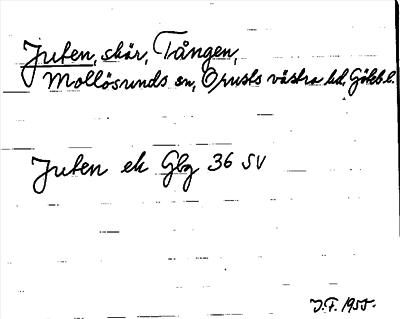 Juten, skär, Tången,
Mollösunds sn, Orusts västra hd, Götebs l.
Juten ek Gbg 36 SV
J.F. 1955.